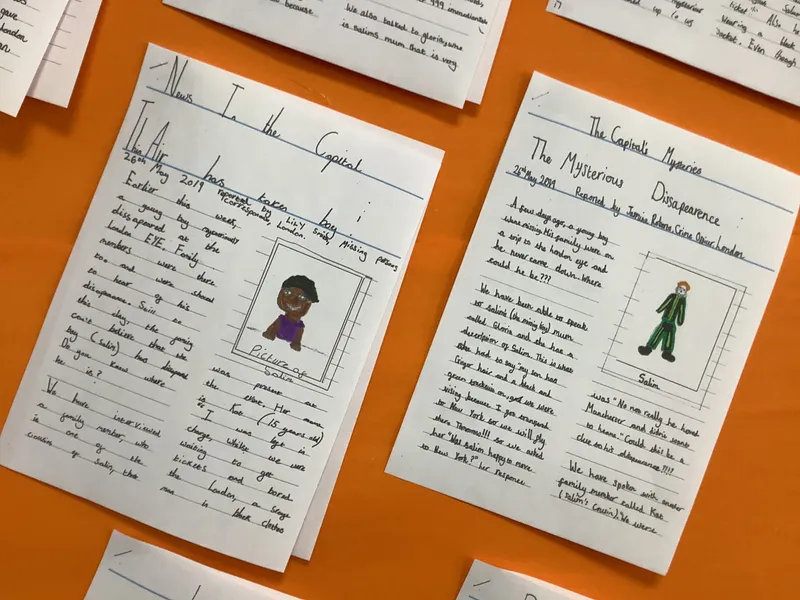 gave
London
on
999 immediately
because
We also talked to gloria, who
is salims mum that is very
up to us
ticket
Also he
Wearing a black
Jacket. Even though
News In the Capital
Thin Air has taken boy
26th May 2019
reported by Lily Smith, Missing persons
correspondent, London.
Earlier this week,
a young boy mysteriously
dissapeared at the
London EYE. Family
members were there
too and were shocked
to hear of his
disapearance. Still to
this day, the family
can't believe that the
boy (Salim) has disapeared
Do you know where
he is?
We have interviewed
a family member, who
is one of the
cousins of Salim, that
Picture of
Salim
was present at
the event. Her name
is Kat (15 years old)
"I was bye in
charge, whilst we were
waiting to get
tickets and bored
the London, a strange
man in black clothes
The Capital's Mysteries
The Mysterious Disapearence
26th May 2019
Reported by Jamie Roberts, Crime Officer, London
A few days ago, a young boy
went missing. His family were on
a trip to the london eye and
he never came down. Where
could he be???
We have been able to speak
to Salim's (the missing boy) mum
called Gloria and she has a
description of Salim. This is what
she had to say "my son has
Ginger hair and a black and
green tracksuit on, and we were
visiting because I got transfered
to New York so we will fly
there Tomorrow!!! so we asked
her "Was Salim happy to move
to New York?" her responce
Salim
was "No not really he loved
Manchester and
to home." Could this be a
clue to his disapearence????
We have spoken with another
family member called Kat
(Salim's Cousin). "We were